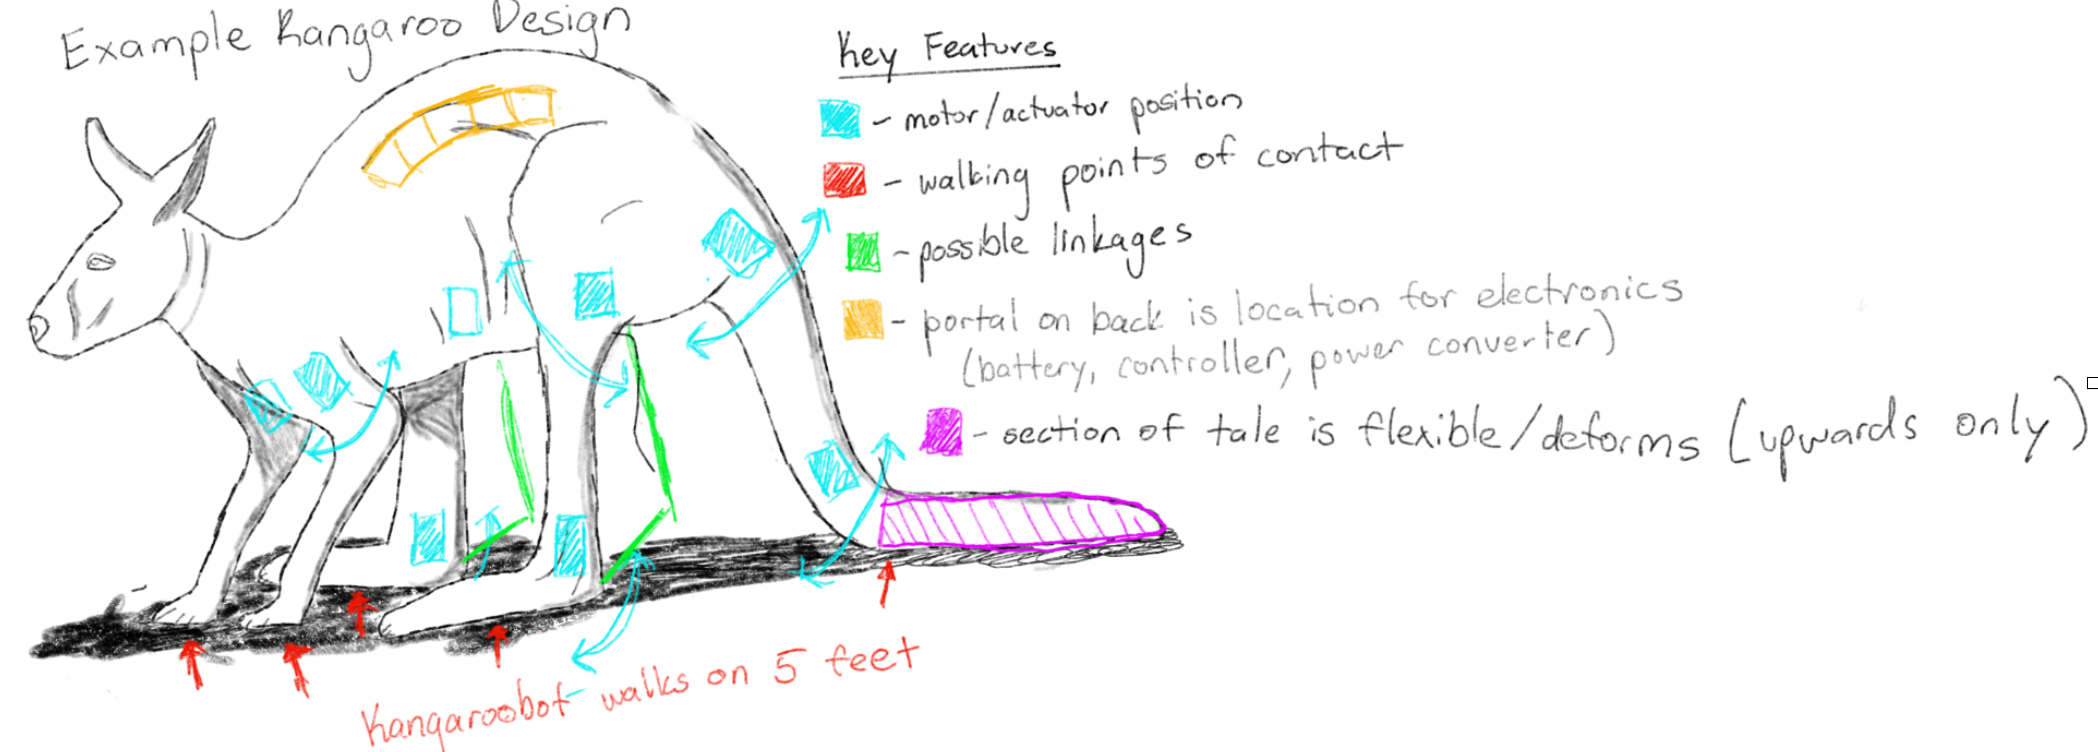 Example Kangaroo Design
Key Features
- motor/actuator position
- walking points of contact
- possible linkages
- portal on back is location for electronics
(battery, controller, power converter)
- section of tale is flexible/deforms (upwards only)
Kangaroobot walks on 5 feet